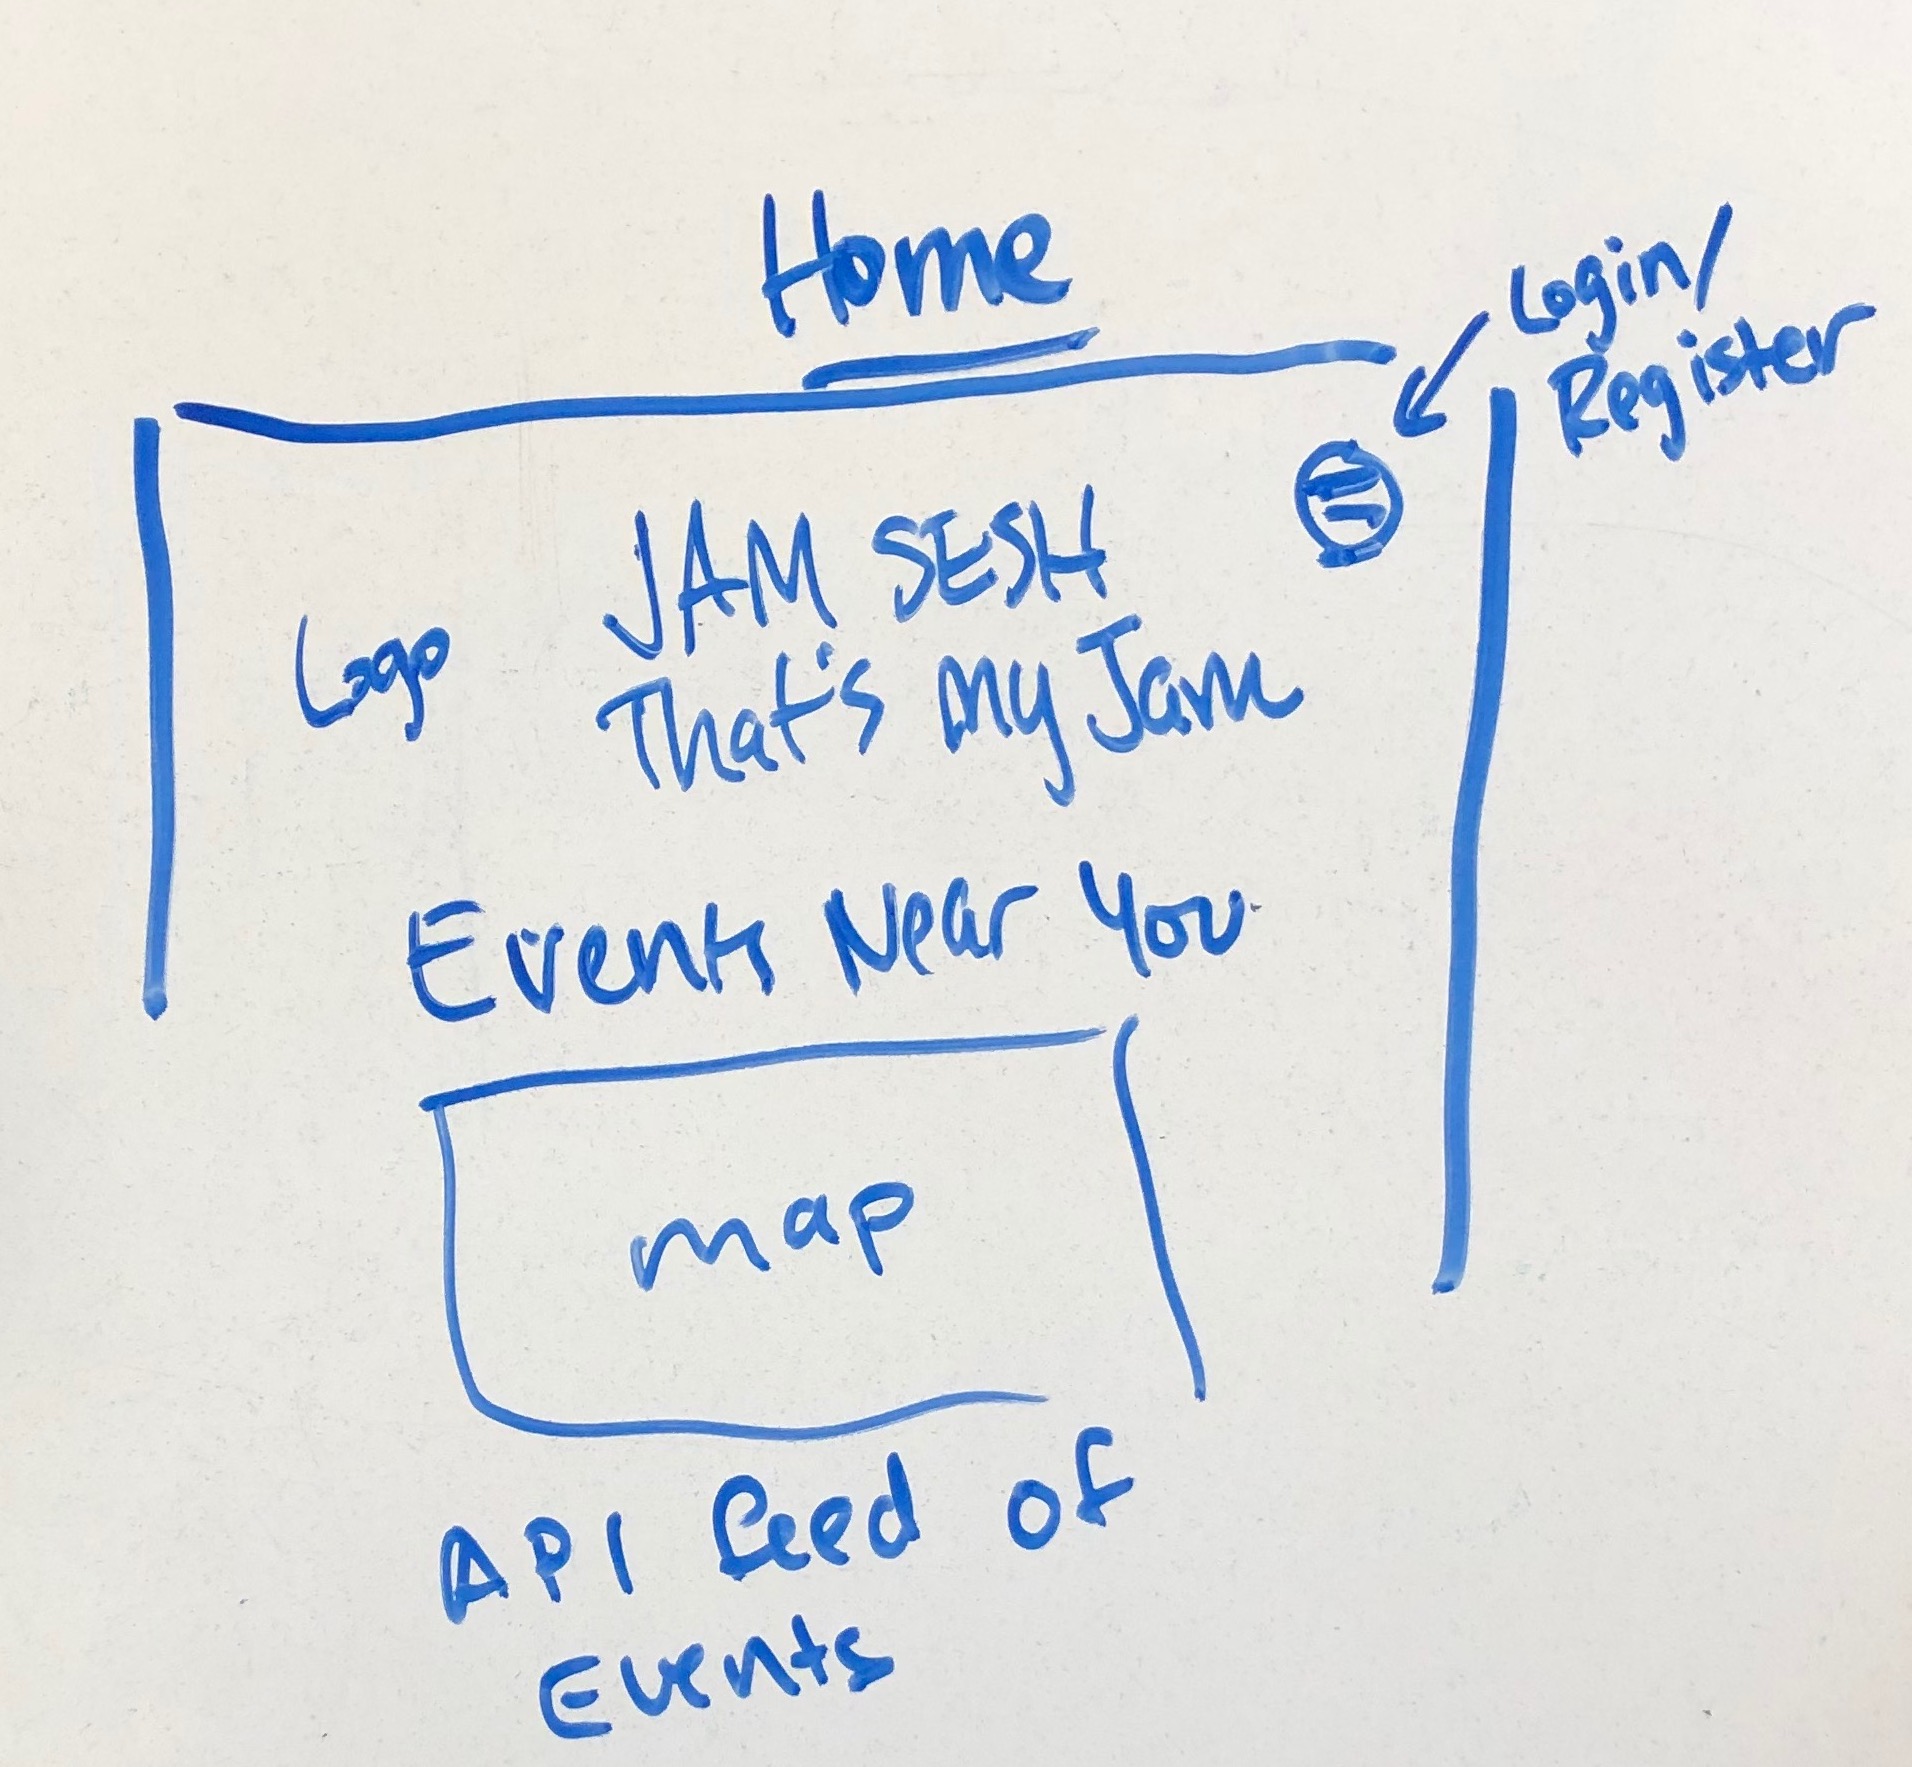 Home
Login/
Register
JAM SESH
Logo
That's my Jam
Events Near You
map
API feed of
Events